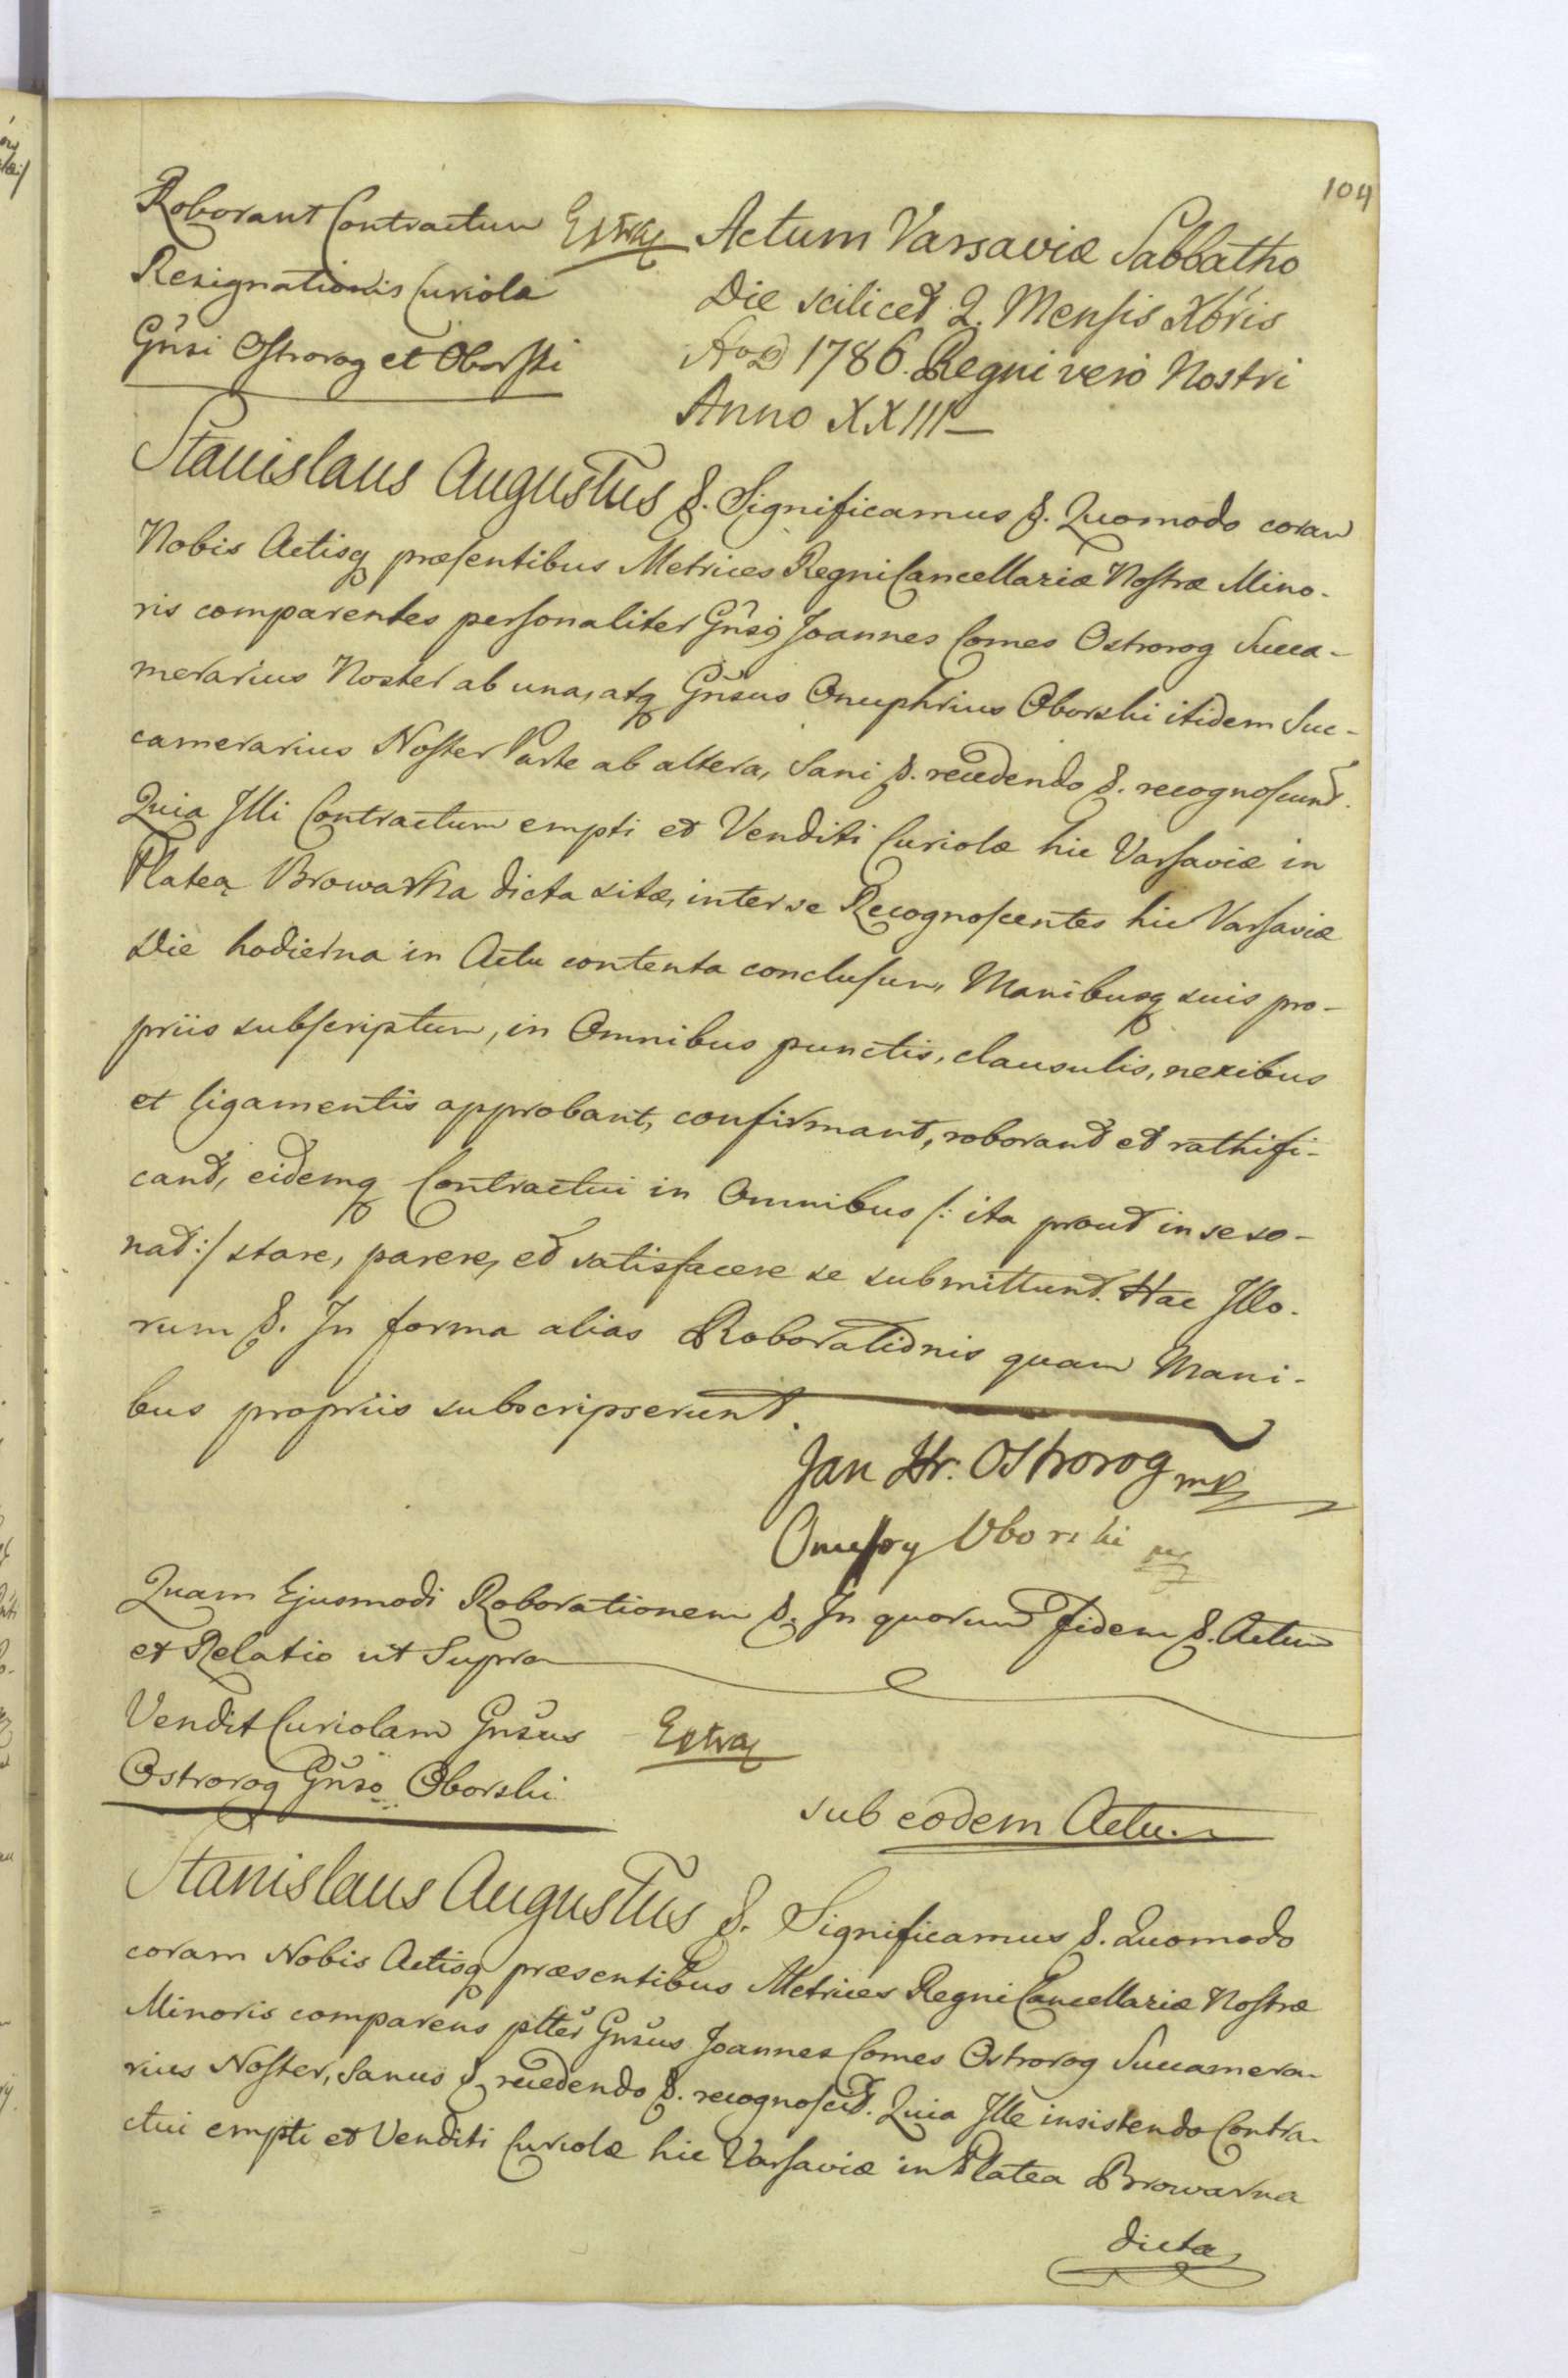 104
Roborant Contractum
Resignationis Curiola
Gñsi Ostrorog et Oborski
Extrax
Actum Varsaviæ Sabbatho
Die scilicet 2. Mensis Xbris
AoD 1786. Regni vero Nostri
Anno XXIII
Stanislaus Augustus &. Significamus &. Quomodo coram
Nobis Actisq præsentibus Metrices Regni Cancellariæ Nostræ Mino-
ris comparentes personaliter Gñsq Joannes Comes Ostrorog Succa-
merarius Noster ab una, atq Gñsus Onuphrius Oborski itidem Suc-
camerarius Noster Parte ab altera, Sani &. recedendo &. recognoscunt.
Quia Illi Contractum empti et Venditi Curiolæ hic Varsaviæ in
Platea Browarna dicta sitæ, inter se Recognoscentes hic Varsaviæ
Die hodierna in Actu contenta conclusum, Manibusq suis pro-
priis subscriptum, in Omnibus punctis, clausulis, nexibus
et ligamentis approbant, confirmant, roborant et rathifi-
cant, eidemq Contractui in Omnibus /: ita prout in se so-
nat :/ stare, parere, et satisfacere se submittunt. Hac Illo-
rum &. In forma alias Roborationis quam Mani-
bus propriis subscripserunt.
Jan Hr. Ostrorog mp
Onufry Oborski mp
Quam Ejusmodi Roborationem &. In quorum fidem &. Actum
et Relatio ut Supra
Vendit Curiolam Gnsus
Ostrorog Gñso Oborski
Extrax
sub eodem Actu.
Stanislaus Augustus &. Significamus &. Quomodo
coram Nobis Actisq præsentibus Metrices Regni Cancellariæ Nostræ
Minoris comparens pltter Gnsus Joannes Comes Ostrorog Succamera-
rius Noster, Sanus &. recedendo &. recognoscit. Quia Ille insistendo Contra-
ctui empti et Venditi Curiolæ hic Varsaviæ in Platea Browarna
dicta